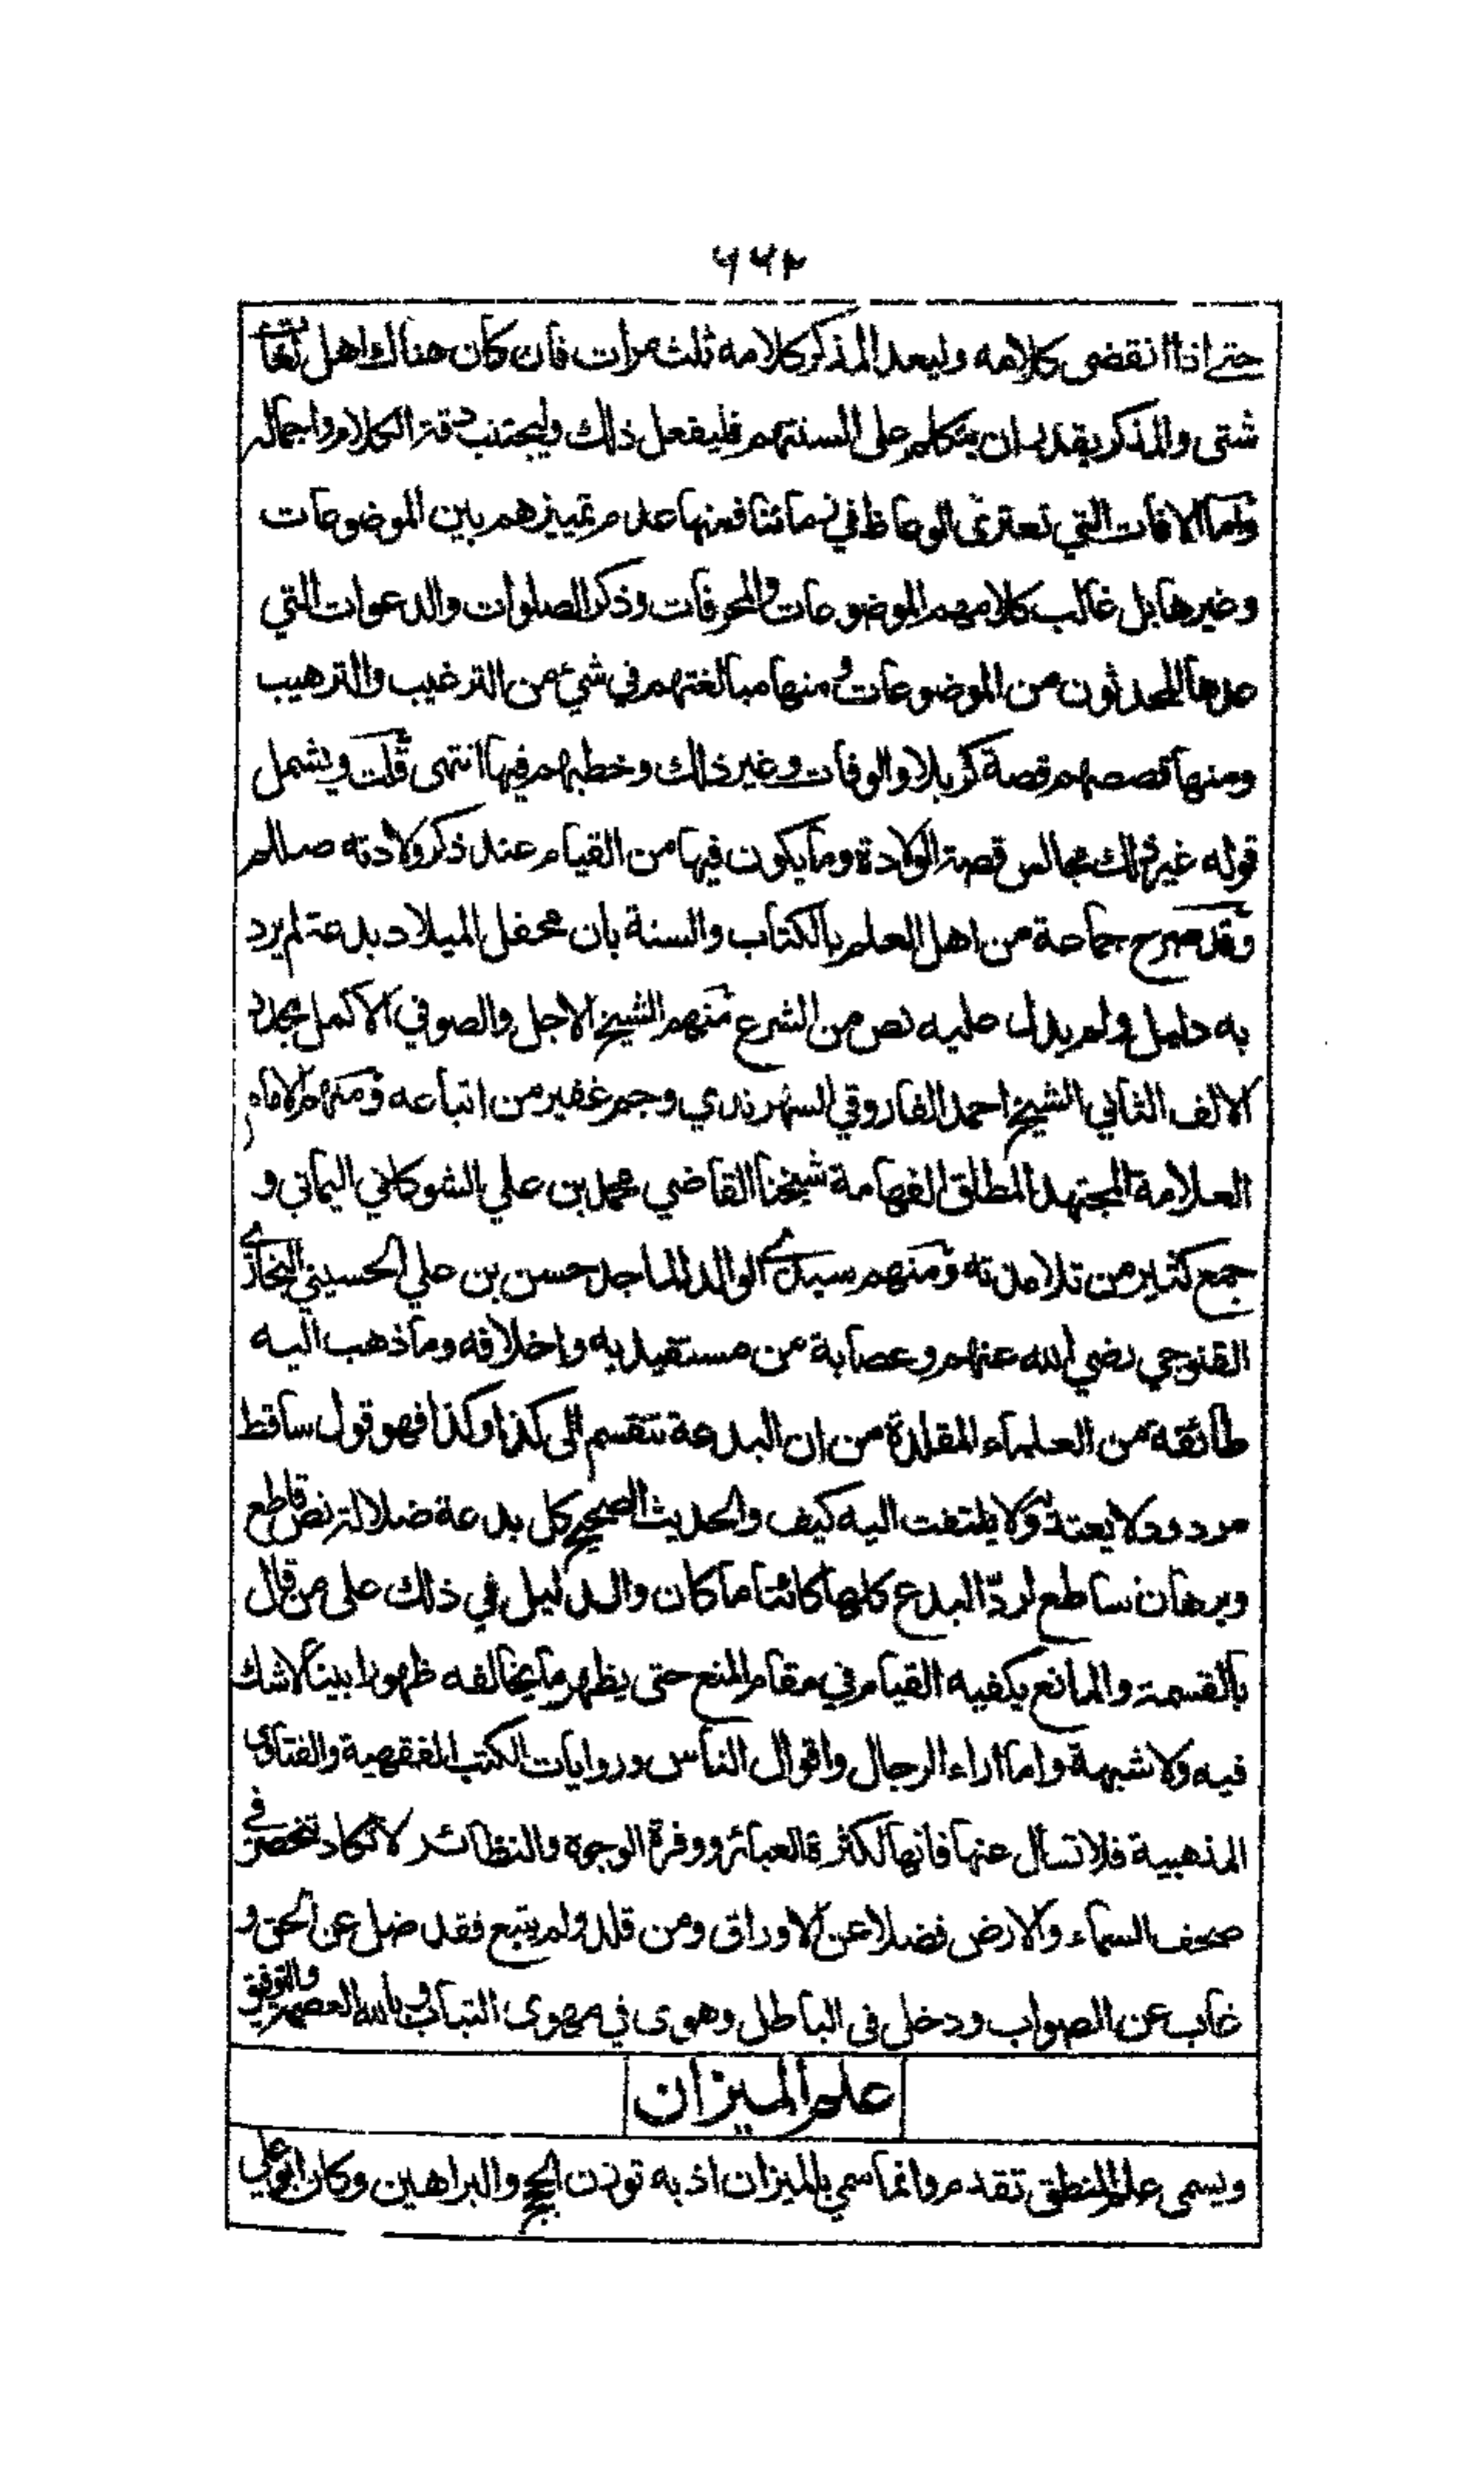 ٦٦٢
حتى اذا انقضى كلامه وليعد المذكر كلامه ثلث مرات فان كان هناك اهل لغات
شتى والمذكر يقدر ان يتكلم على السنتهم فليفعل ذلك وليجتنب دقة الكلام واجماله
واما الافات التي تعتري الوعاظ في زماننا فمنها عدم تمييزهم بين الموضوعات
وغيرها بل غالب كلامهم الموضوعات والمحرفات وذكر الصلوات والدعوات التي
عدها المحدثون من الموضوعات ومنها مبالغتهم في شيء من الترغيب والترهيب
ومنها قصصهم قصة كربلا والوفات وغير ذلك وخطبهم فيها انتهى قلت ويشمل
قوله غير ذلك مجالس قصة الولادة وما يكون فيها من القيام عند ذكر ولادته صللم
وقد صرح جماعة من اهل العلم بالكتاب والسنة بان محفل الميلاد بدعة لم يرد
به دليل ولم يدل عليه نص من الشرع منهم الشيخ الاجل والصوفي الاكمل مجدد
الالف الثاني الشيخ احمد الفاروقي السهرندي وجم غفير من اتباعه ومنهم الامام
العلامة المجتهد المطلق الفهامة شيخنا القاضي محمد بن علي الشوكاني اليماني و
جمع كثير من تلامذته ومنهم سيدي الوالد الماجد حسن بن علي الحسيني البخاري
القنوجي رضي الله عنهم وعصابة من مستفيديه واخلافه وما ذهب اليه
طائفة من العلماء المقلدة من ان البدعة تنقسم الى كذا وكذا فهو قول ساقط
مردود لا يعتد به ولا يلتفت اليه كيف والحديث الصحيح كل بدعة ضلالة نص قاطع
وبرهان ساطع لردّ البدع كلها كائنا ما كان والدليل في ذلك على من قال
بالقسمة والمانع يكفيه القيام في مقام المنع حتى يظهر ما يخالفه ظهورا بينا لا شك
فيه ولا شبهة واما اراء الرجال واقوال الناس وروايات الكتب الفقهية والفتاوى
المذهبية فلا تسأل عنها فانها لكثرة العبائر ووفرة الوجوه والنظائر لا تكاد تنحصر في
صحف السماء والارض فضلا عن الاوراق ومن قلد ولم يتبع فقد ضل عن الحق و
غاب عن الصواب ودخل في الباطل وهوى في مهوى التباب وبالله العصمة والتوفيق
علم الميزان
ويسمى علم المنطق تقدم وانما سمي بالميزان اذ به توزن الحجج والبراهين وكان ابو علي